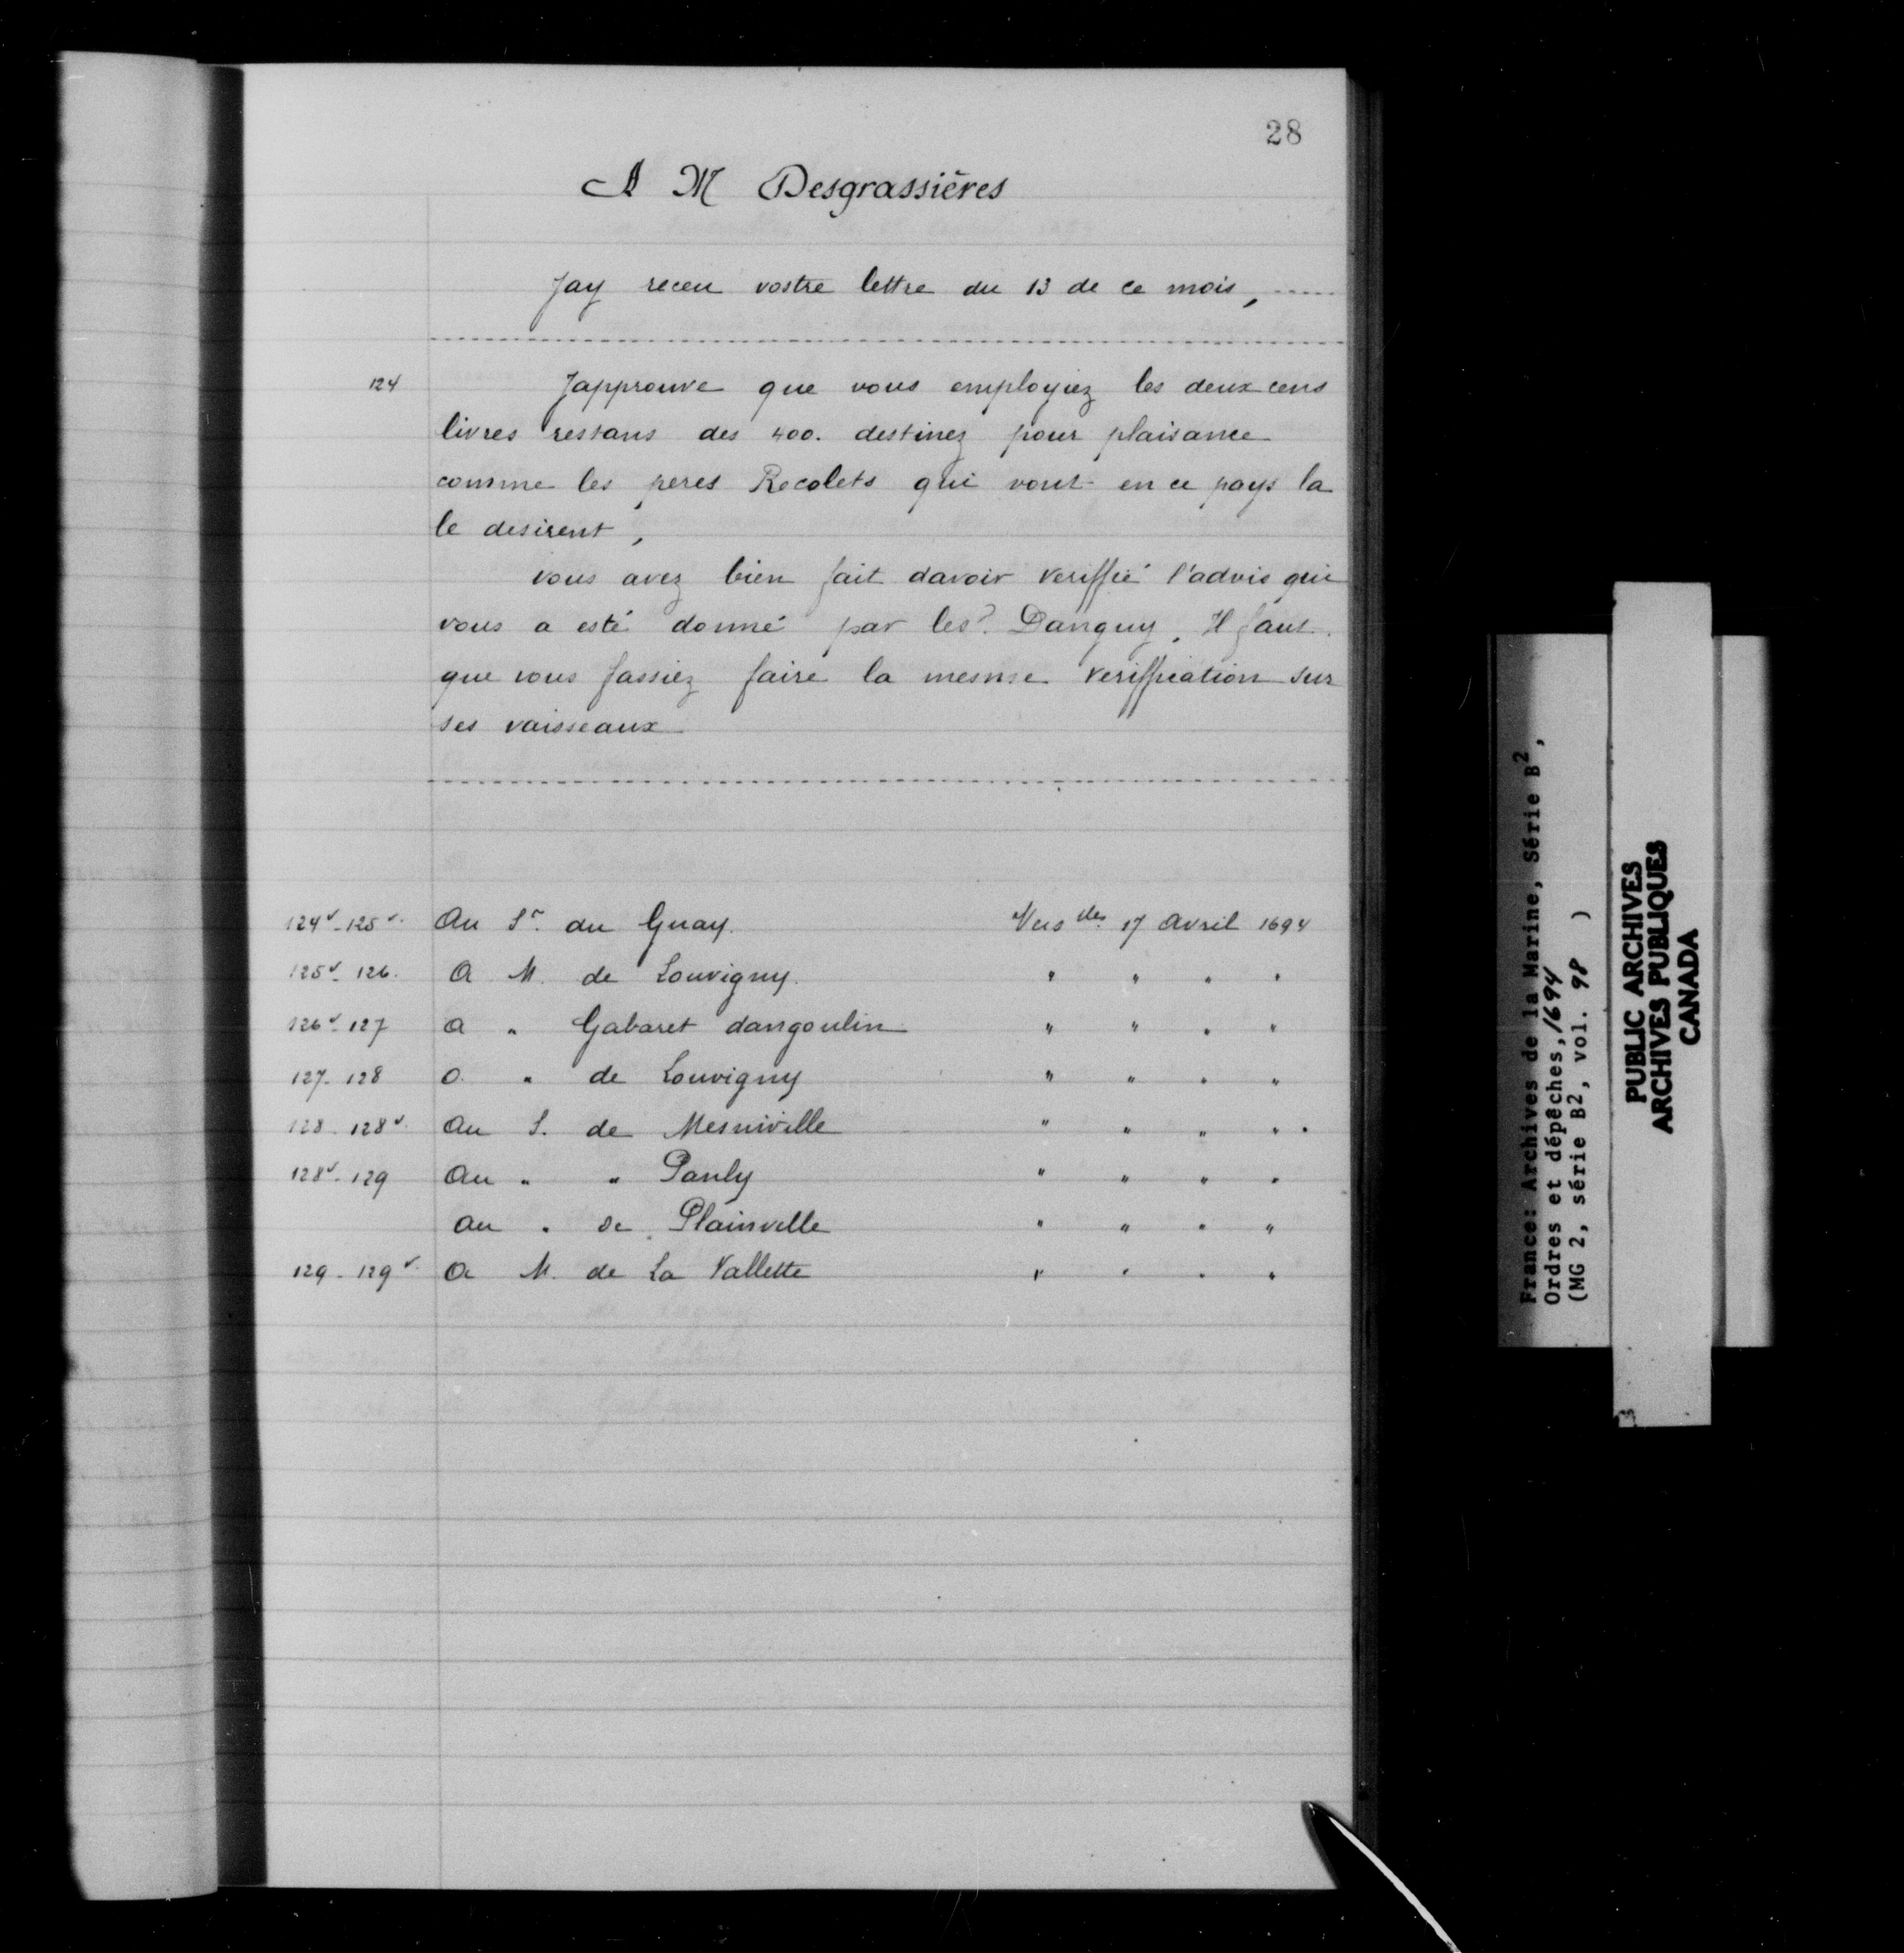 28
A M Desgrassières
Jay receu vostre lettre du 13 de ce mois, .....
124 Japprouve que vous employiez les deux cens
livres restans des 400. destinez pour plaisance
comme les peres Recolets qui vont en ce pays la
le desirent,
vous avez bien fait davoir veriffié l'advis qui
vous a esté donné par le Sr. Danguy, Il faut
que vous fassiez faire la mesme veriffication sur
ses vaisseaux
124v-125v. Au Sr. du Guay. Versles. 17 Avril 1694
125v-126. A M. de Louvigny. " " " "
126v-127 A " Gabaret dangoulin " " " "
127-128 a " de Louvigny " " " "
128-128v. Au S. de Mesniville " " " "
128v-129 Au " " Pauly " " " "
au " de Plainville " " " "
129-129v. A M. de La Vallette " " " "
France: Archives de la Marine, Série B2,
Ordres et dépêches, 1694
(MG 2, série B2, vol. 98 )
PUBLIC ARCHIVES
ARCHIVES PUBLIQUES
CANADA